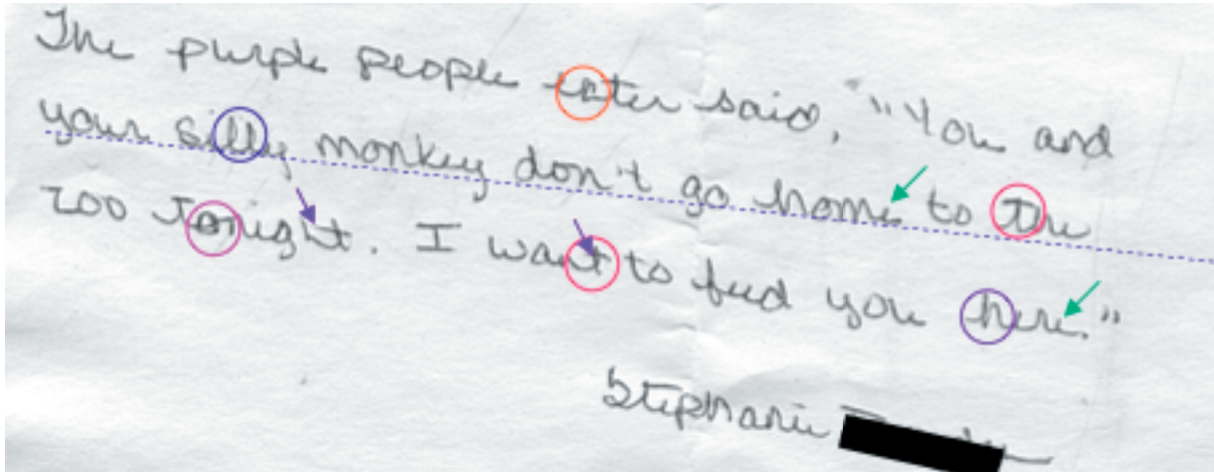 The purple people eater said, "You and
your silly monkey don't go home to the
zoo tonight. I want to feed you here."
Stephanie